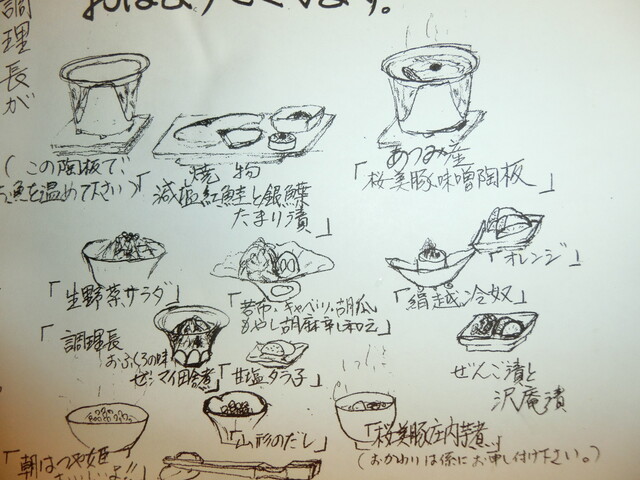 おはようございます。
調理長が
(この陶板で
魚を温めて下さい)
焼物
「減塩紅鮭と銀鱈
たまり漬」
あつみ産
「桜美豚味噌陶板」
「生野菜サラダ」
「若布、キャベツ、胡瓜
もやし胡麻辛し和え」
「絹越冷奴」
「オレンジ」
「調理長
おふくろの味
ゼンマイ田舎煮」
「甘塩タラ子」
ぜんご漬と
沢庵漬
「朝はつや姫
「山形のだし」
「桜美豚庄内芋煮」
(おかわりは係にお申し付け下さい。)